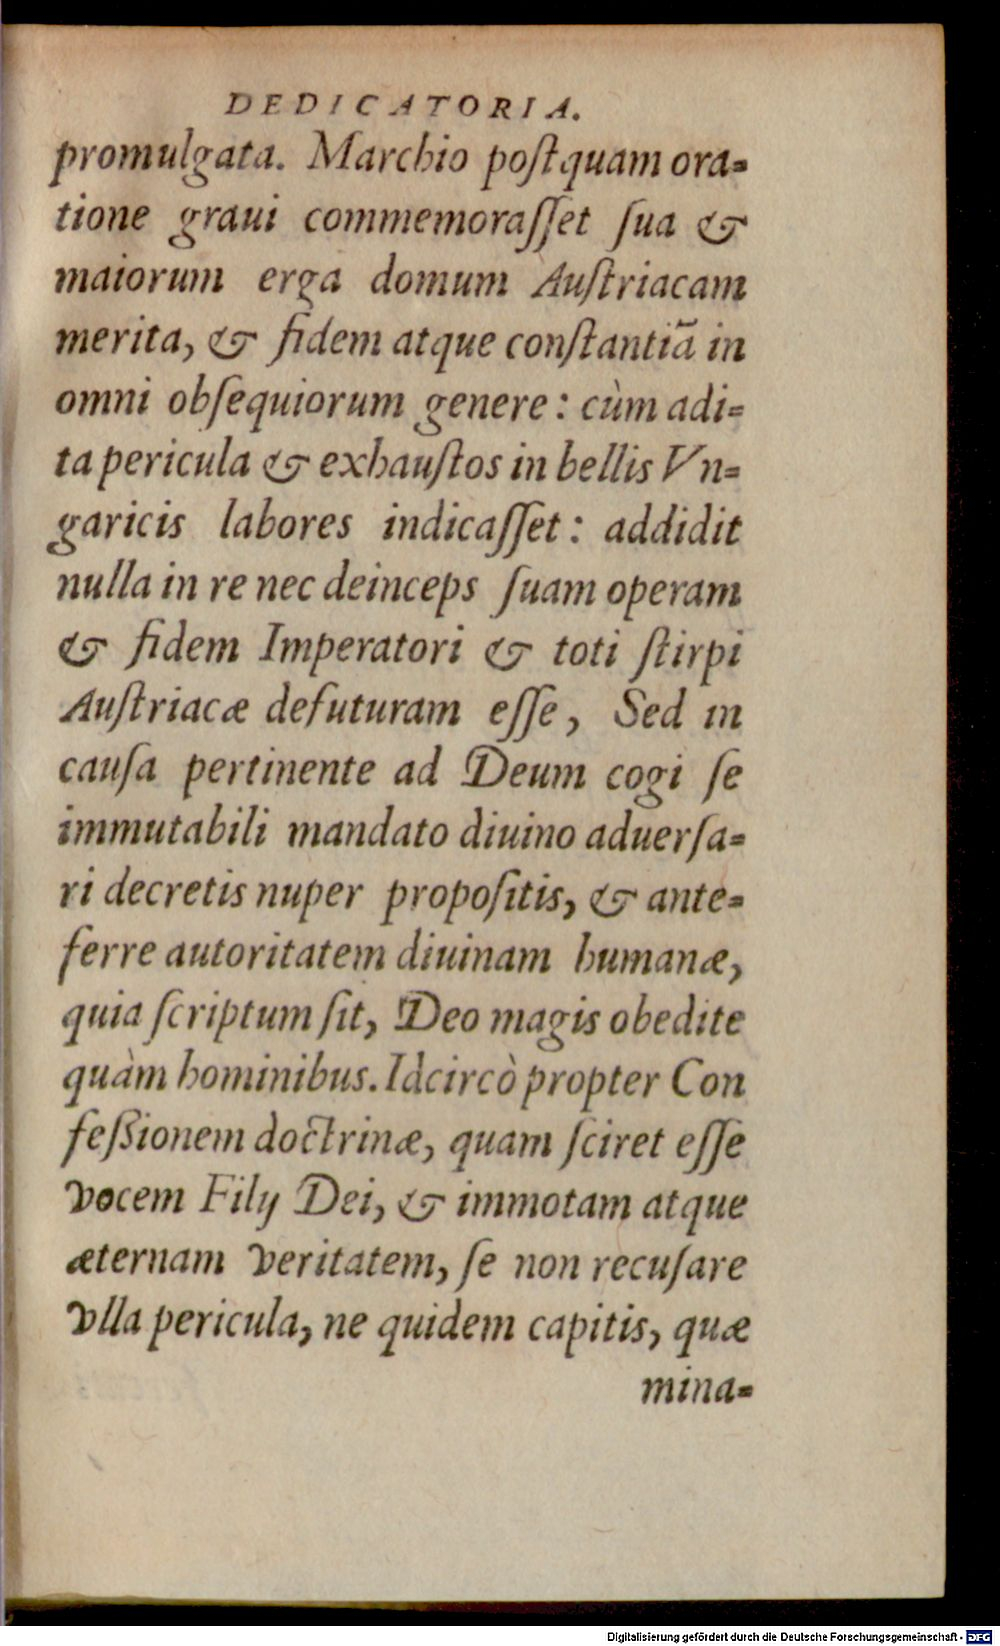 DEDICATORIA.
promulgata. Marchio poſtquam ora=
tione graui commemoraſſet ſua &
maiorum erga domum Auſtriacam
merita, & fidem atque conſtantiã in
omni obſequiorum genere: cùm adi=
ta pericula & exhauſtos in bellis Vn=
garicis labores indicaſſet: addidit
nulla in re nec deinceps ſuam operam
& fidem Imperatori & toti ſtirpi
Auſtriacæ defuturam eſſe, Sed in
cauſa pertinente ad Deum cogi ſe
immutabili mandato diuino aduerſa=
ri decretis nuper propoſitis, & ante=
ferre autoritatem diuinam humanæ,
quia ſcriptum ſit, Deo magis obedite
quàm hominibus. Idcircò propter Con
feßionem doctrinæ, quam ſciret eſſe
vocem Filij Dei, & immotam atque
æternam veritatem, ſe non recuſare
vlla pericula, ne quidem capitis, quæ
mina=
Digitalisierung gefördert durch die Deutsche Forschungsgemeinschaft - DFG